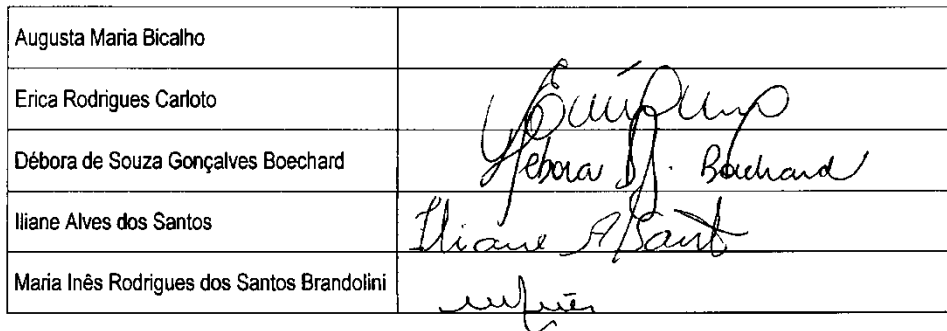 Augusta Maria Bicalho
Erica Rodrigues Carloto
Débora de Souza Gonçalves Boechard
Debora Boechard
Iliane Alves dos Santos
Iliane A Sant
Maria Inês Rodrigues dos Santos Brandolini